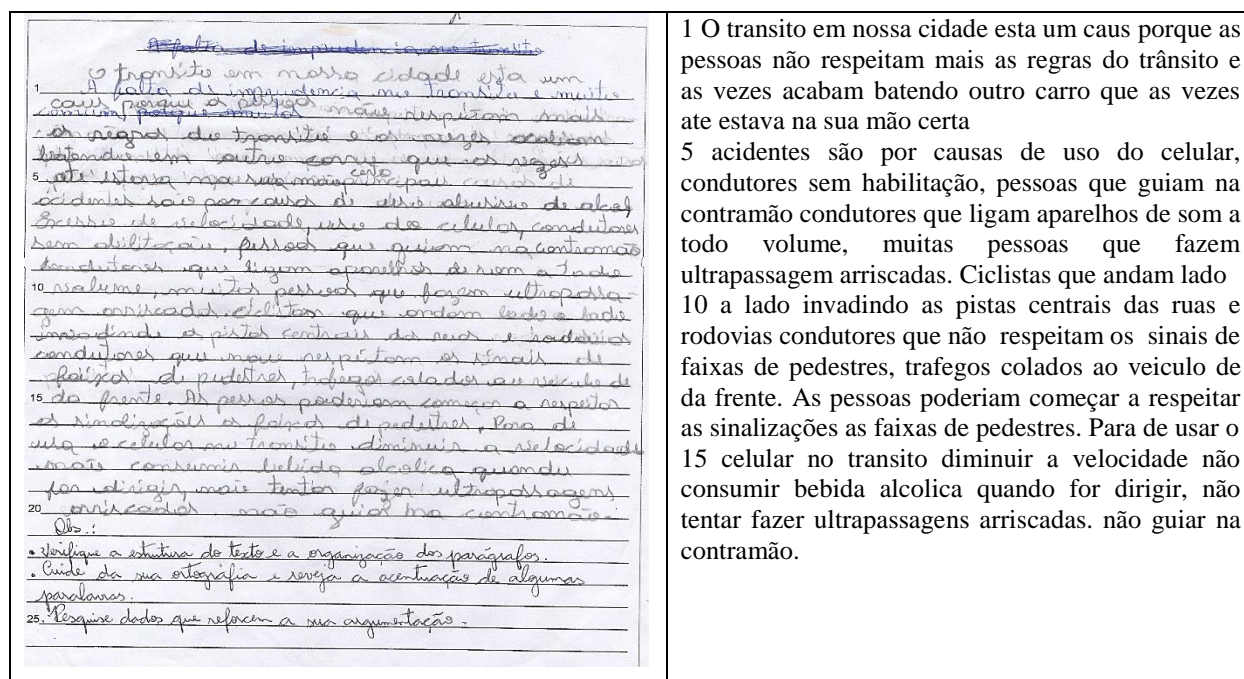 A falta de imprudencia no transito
O transito em nossa cidade esta um
1 A falta de imprudencia no transito e muito
caus porque as pessoas não respeitam mais
comum, porque muitos
as regras do transitio e as vezes acabam
batendo em outro carro que as vezes
5 ate estava na sua mão certa principais causas de
acidentes são por causas de abusivo de alcol,
Excesso de velocidade, uso do celular, condutores
sem abilitação, pessoas que guiam na contramão
condutores que ligam aparelhos de som a todo
10 volume, muitas pessoas que fazem ultrapassa-
gem arriscadas. ciclistas que andam lado a lado
invadindo as pistas centrais das ruas e rodovias
condutores que não respeitam os sinais de
faixas de pedestres, trafegos colados ao veiculo de
15 da frente. As pessoas poderiam começar a respeitar
as sinalizações as faixas de pedestres. Para de
usa o celular no transito diminuir a velocidade
não consumir bebida alcolica quando
for dirigir, não tentar fazer ultrapassagens
20 arriscadas não guiar na contramão.
Obs.:
• Verifique a estrutura do texto e a organização dos parágrafos.
• Cuide da sua ortografia e reveja a acentuação de algumas
paralavras.
25 • Pesquise dados que reforcem a sua argumentação.
1 O transito em nossa cidade esta um caus porque as
pessoas não respeitam mais as regras do trânsito e
as vezes acabam batendo outro carro que as vezes
ate estava na sua mão certa
5 acidentes são por causas de uso do celular,
condutores sem habilitação, pessoas que guiam na
contramão condutores que ligam aparelhos de som a
todo volume, muitas pessoas que fazem
ultrapassagem arriscadas. Ciclistas que andam lado
10 a lado invadindo as pistas centrais das ruas e
rodovias condutores que não respeitam os sinais de
faixas de pedestres, trafegos colados ao veiculo de
da frente. As pessoas poderiam começar a respeitar
as sinalizações as faixas de pedestres. Para de usar o
15 celular no transito diminuir a velocidade não
consumir bebida alcolica quando for dirigir, não
tentar fazer ultrapassagens arriscadas. não guiar na
contramão.